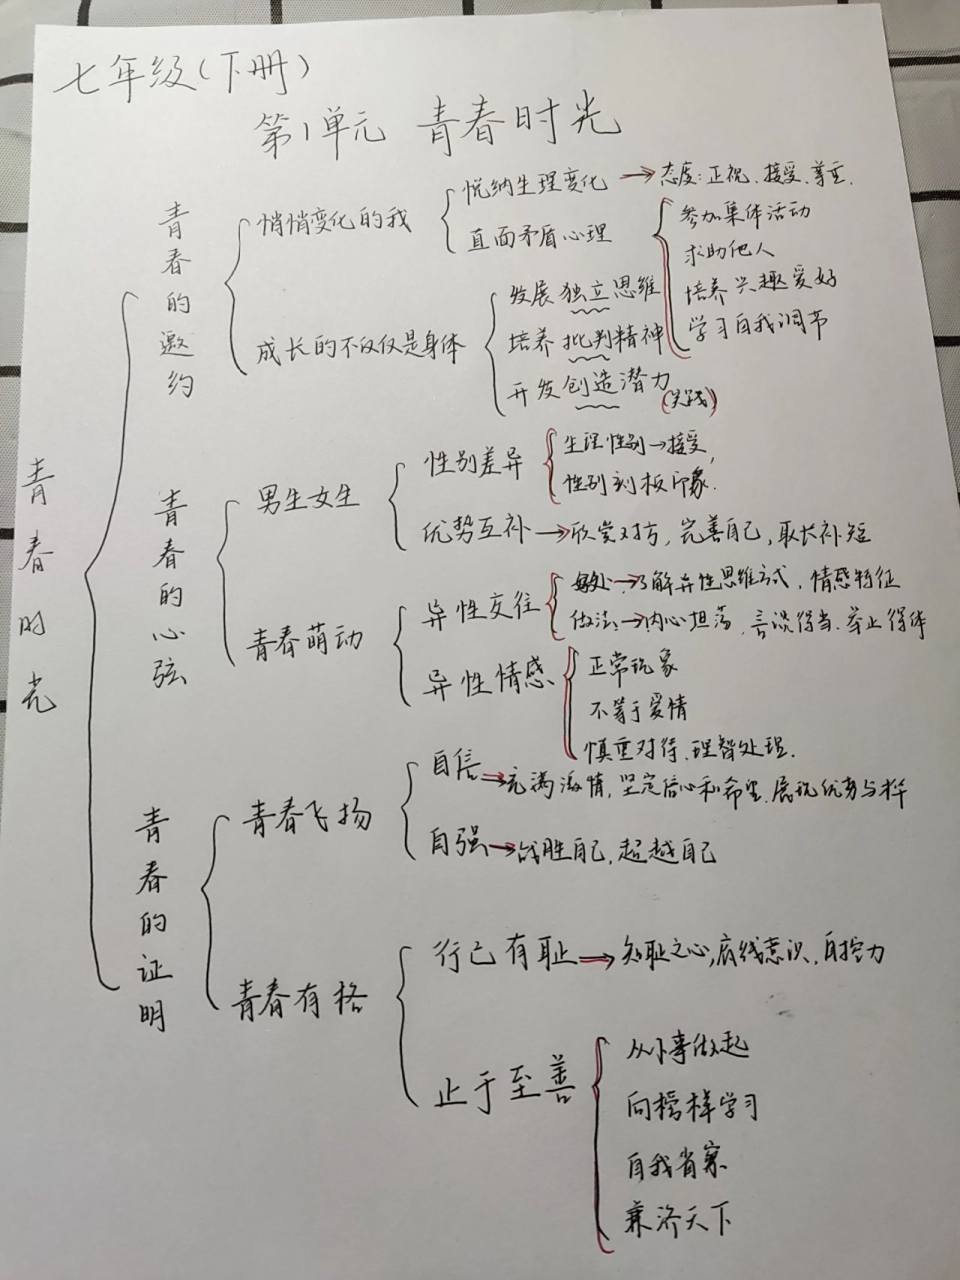 七年级(下册)
第1单元 青春时光
青春时光
青春的邀约
悄悄变化的我
悦纳生理变化→态度:正视、接受、尊重.
直面矛盾心理
参加集体活动
求助他人
培养兴趣爱好
学习自我调节
成长的不仅仅是身体
发展独立思维
培养批判精神
开发创造潜力
(实践)
青春的心弦
男生女生
性别差异
生理性别→接受,
性别刻板印象.
优势互补→欣赏对方,完善自己,取长补短
青春萌动
异性交往
→了解异性思维方式,情感特征
做法:→内心坦荡、言谈得当、举止得体
异性情感
正常现象
不等于爱情
慎重对待、理智处理.
青春的证明
青春飞扬
自信→充满激情,坚定信心和希望、展现优势与才华
自强→战胜自己,超越自己
青春有格
行己有耻→知耻之心,底线意识,自控力
止于至善
从小事做起
向榜样学习
自我省察
兼济天下